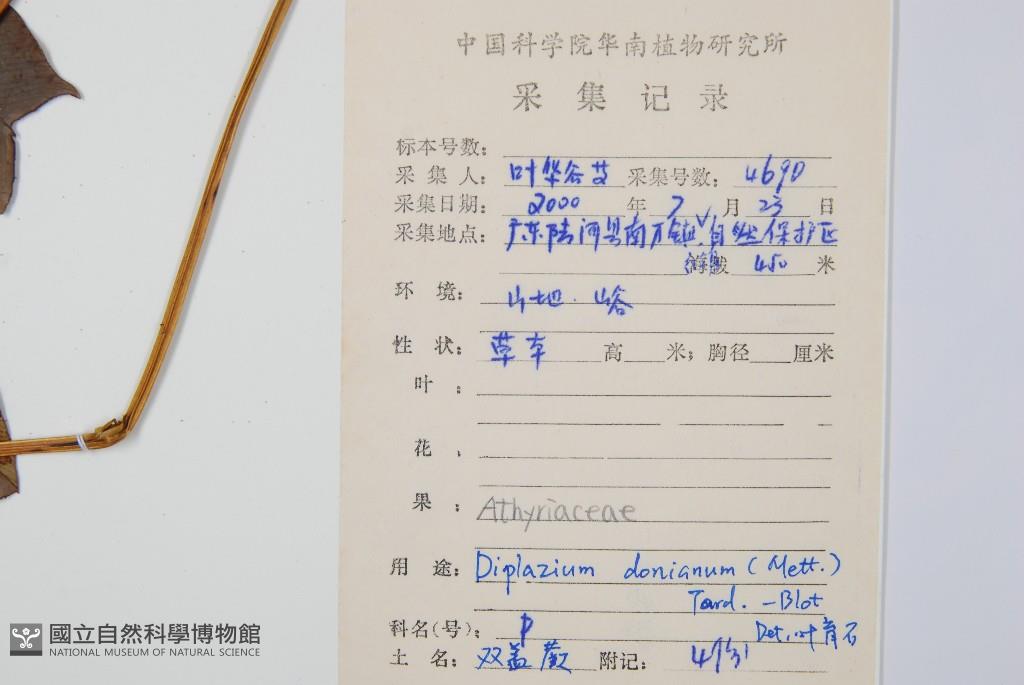 中国科学院华南植物研究所
采集记录
标本号数：
采集人：叶华谷 采集号数：4690
采集日期：2000年7月23日
采集地点：广东陆河县南万镇自然保护区
海拔 450 米
环境：山地．山谷
性状：草本 高 米；胸径 厘米
叶：
花：
果：Athyriaceae
用途：Diplazium donianum (Mett.)
Tard. - Blot
科名(号)：P Det. 叶育石
土名：双盖蕨 附记：
國立自然科學博物館
NATIONAL MUSEUM OF NATURAL SCIENCE